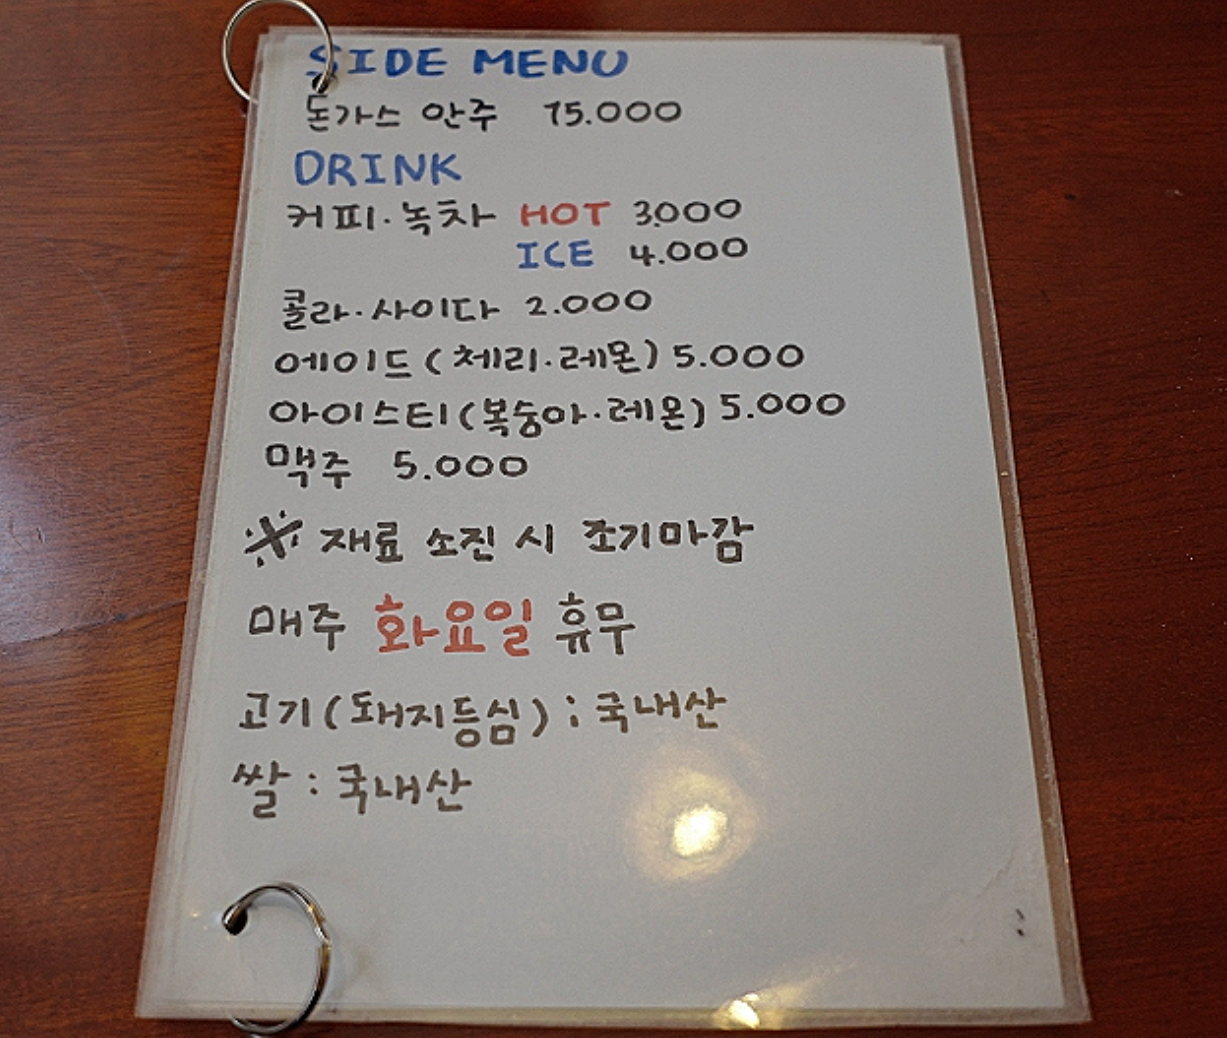 SIDE MENU
돈가스 안주 15.000
DRINK
커피·녹차 HOT 3.000
ICE 4.000
콜라·사이다 2.000
에이드 (체리·레몬) 5.000
아이스티 (복숭아·레몬) 5.000
맥주 5.000
※ 재료 소진 시 조기마감
매주 화요일 휴무
고기 (돼지등심) : 국내산
쌀 : 국내산